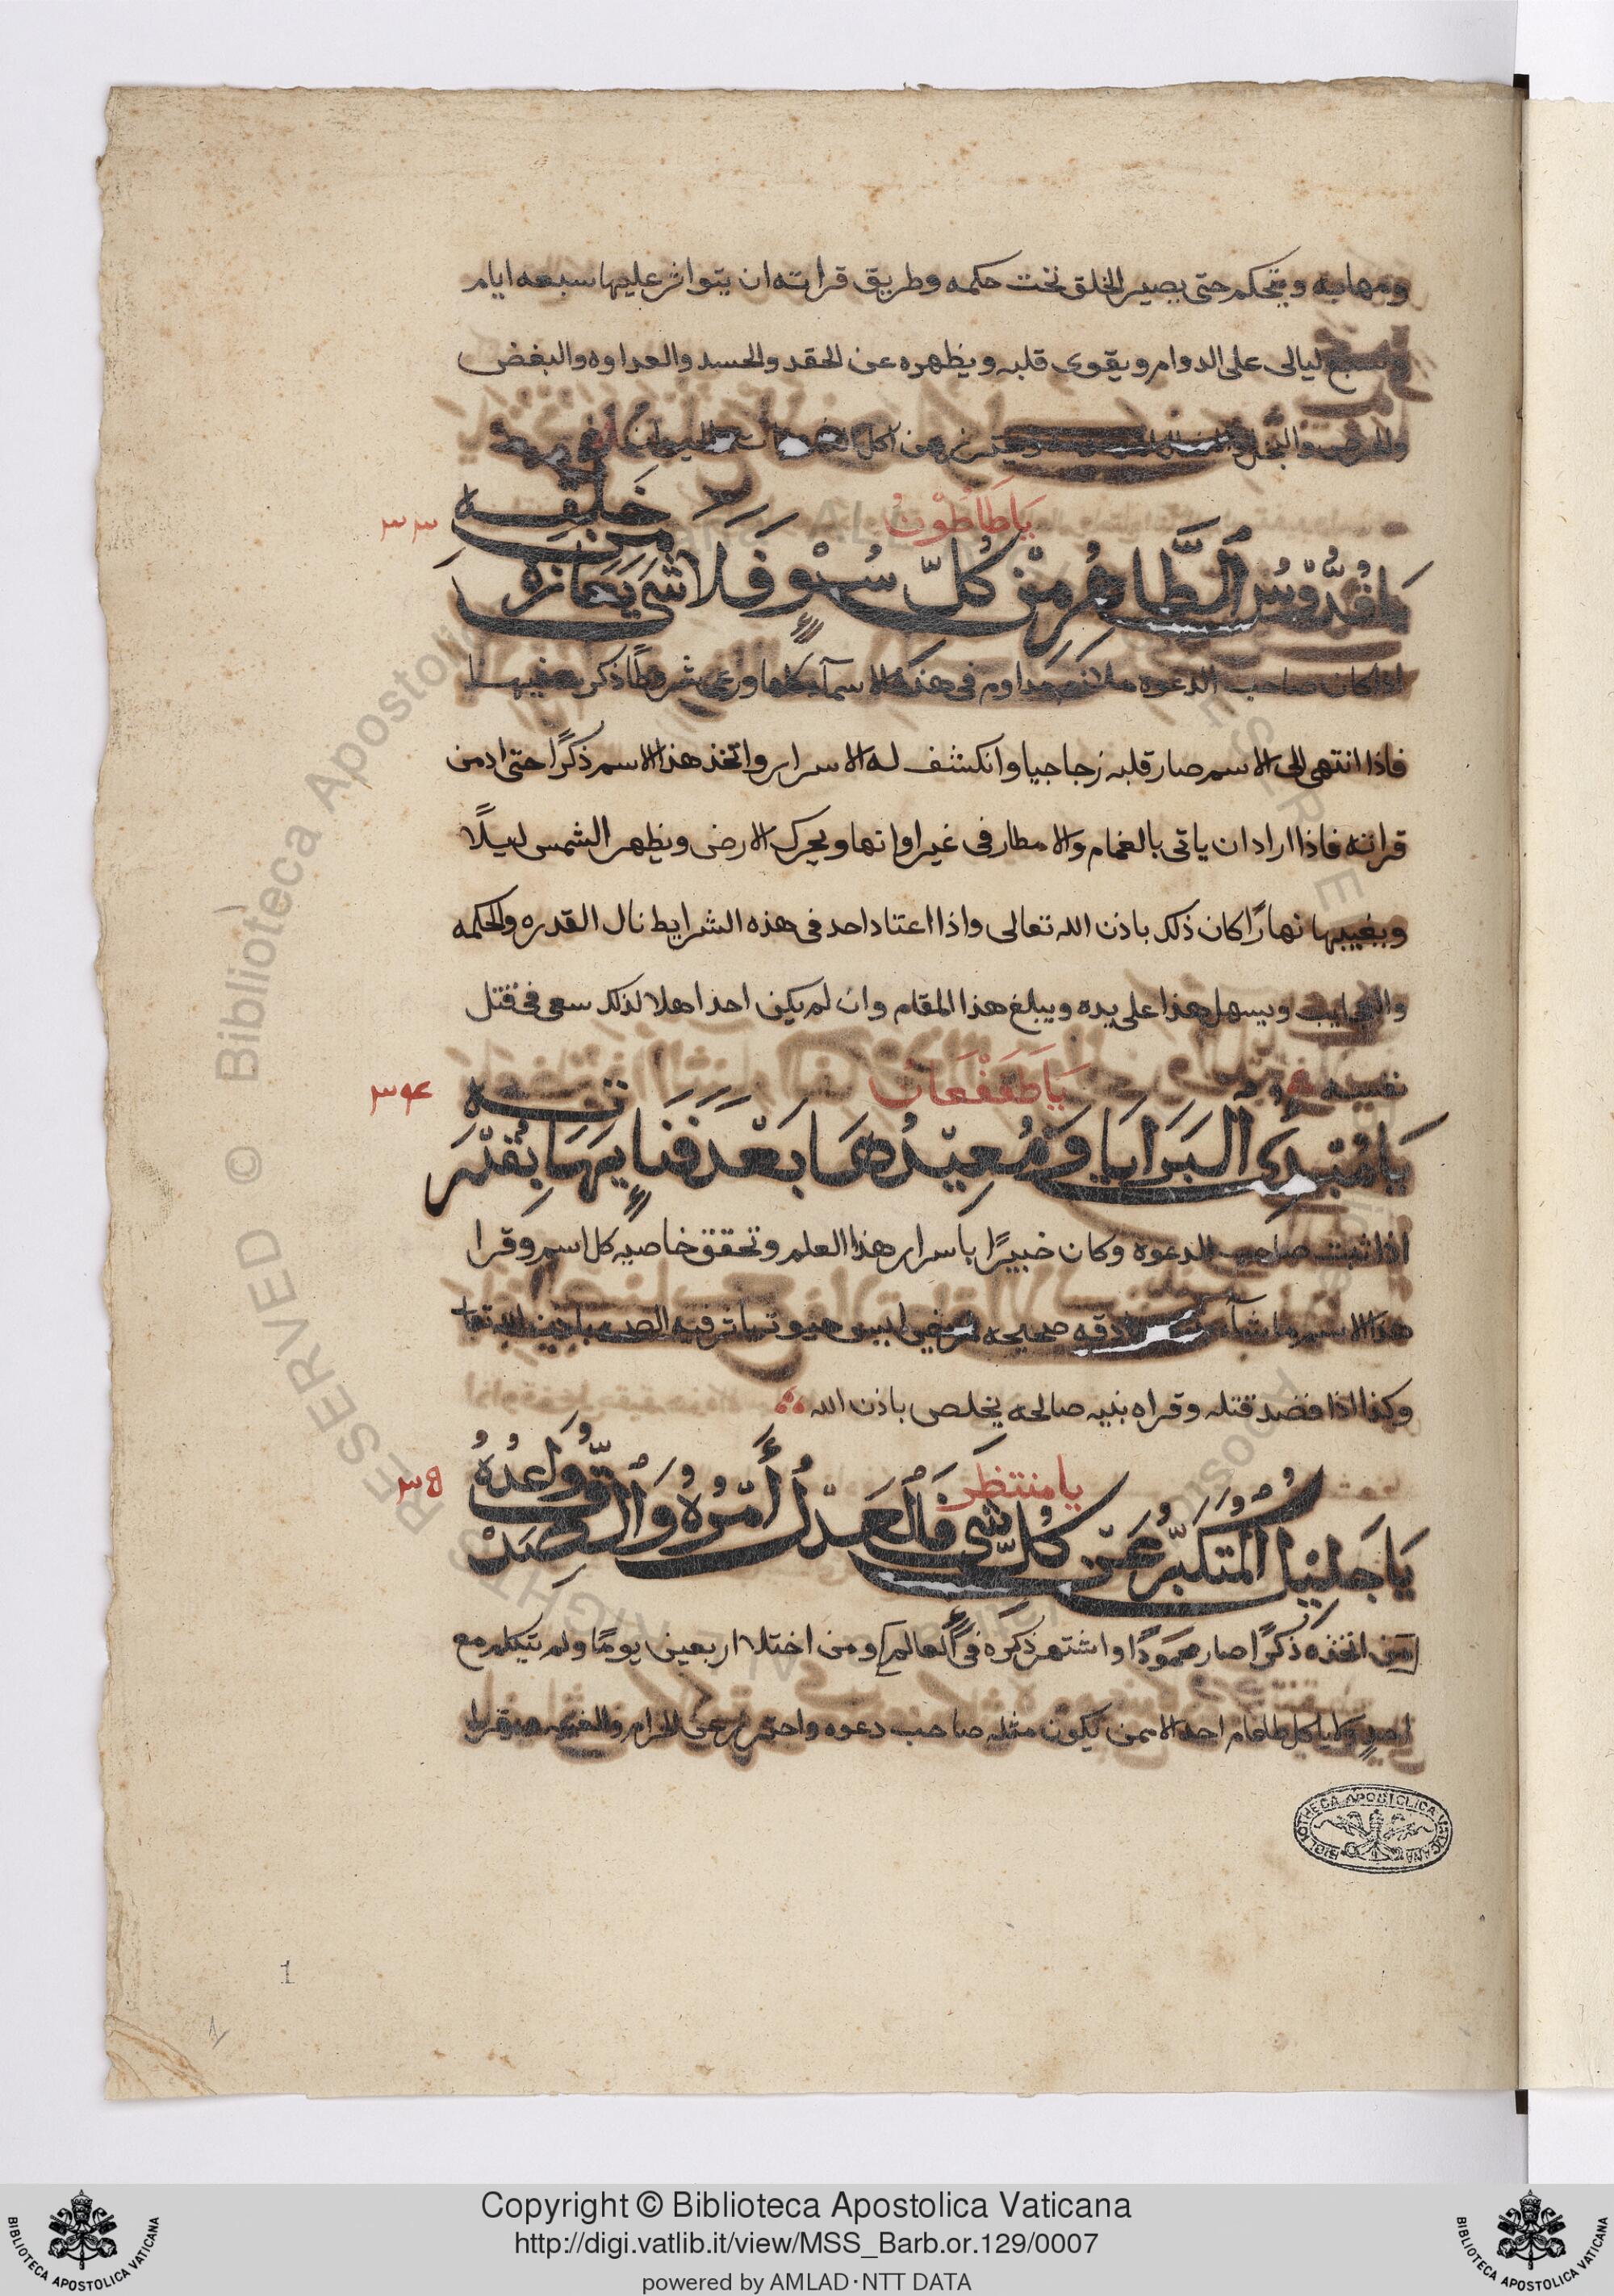 ومهابه ويتحكم حتى يصير الخلق تحت حكمه وطريق قراته ان يتواثر عليها سبعه ايام
ليالى على الدوام ويقوى قلبه ويظهره عن الحقد والحسد والعداوه والبغض
والبخل عن اكل
يَاطَاطَوْن
٣٣
خَلْقِهِ
يَاقُدُّوْسُ الطَّاهِرُ مِنْ كُلِّ سُوْءٍ فَلَا شَيْ يُعَازُهُ مِنْ
اذا كان صاحب الدعوه ملازم مداوم فى هذه الاسمآ كلها وراعى شروطا ذكرها فيها
فاذا انتهى الى الاسم صار قلبه زجاجيا وانكشف له الاسرار واتخذ هذا الاسم ذكرًا حتى ادمن
قراته فاذا اراد ان ياتى بالغمام والامطار فى غير اوانها ويحرك الارض ويظهر الشمس ليلًا
ويغيبها نهارًا كان ذلك باذن الله تعالى واذا اعتاد احد فى هذه الشرايط نال القدره والحكمه
والعجايب ويسهل هذا على يده ويبلغ هذا المقام وان لم يكن احد اهلا لذلك سعى فى قتل
نفسه
٣٤
يَامُبْدِىَ الْبَرَايَا وَمُعِيْدُهَا بَعْدَ فَنَايِهَا بِقُدْرَتِهِ
اذا ثبت صاحب الدعوه وكان خبيرًا باسرار هذا العلم وتحقق خاصيه كل اسم وقرا
هذا الاسم
وكذا اذا قصد قتله وقراه بنيه صالحه يخلص باذن الله
يا منتظر
٣٥
يَاجَلِيْلُ الْمُتَكَبِّرُ عَنْ كُلِّ شَىْ فَالْعَدْلُ أَمْرُهُ وَالصِّدْقُ وَعْدُهُ
من اتخذه ذكرًا صار محمودًا واشتهر ذكره فى العالم ومن اختلا اربعين يومًا ولم يتكلم مع
احدٍ ولا ياكل طعام احد الا ممن يكون مثله صاحب دعوه واحترز عن الحرام
1
BIBLIOTHECA APOSTOLICA VATICANA
© Biblioteca Apostolica Vaticana ALL RIGHTS RESERVED
Copyright © Biblioteca Apostolica Vaticana
http://digi.vatlib.it/view/MSS_Barb.or.129/0007
powered by AMLAD·NTT DATA
BIBLIOTECA APOSTOLICA VATICANA
BIBLIOTECA APOSTOLICA VATICANA